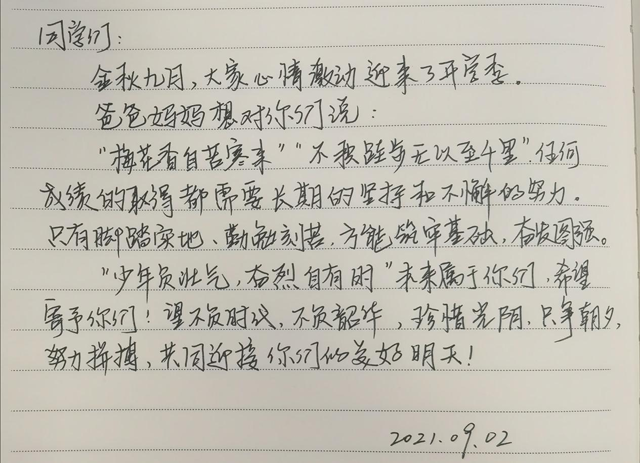 同学们：
金秋九月，大家心情激动迎来了开学季。
爸爸妈妈想对你们说：
"梅花香自苦寒来""不积跬步无以至千里"任何
成绩的取得都需要长期的坚持和不懈的努力。
只有脚踏实地、勤勉刻苦，方能筑牢基础，奋发图强。
"少年负壮气，奋烈自有时"未来属于你们，希望
寄予你们！望不负时代，不负韶华，珍惜光阴，只争朝夕，
努力拼搏，共同迎接你们的美好明天！
2021.09.02